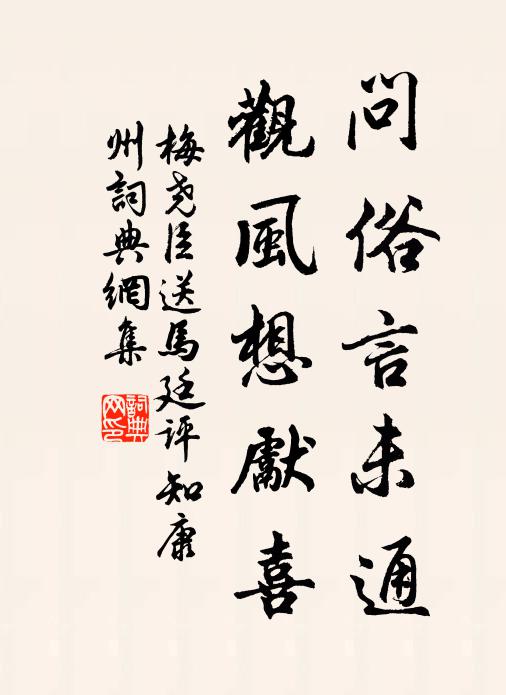 問俗言未通
觀風想獻喜
梅尧臣送馬廷評知康
州詞典網集
詞典
网印